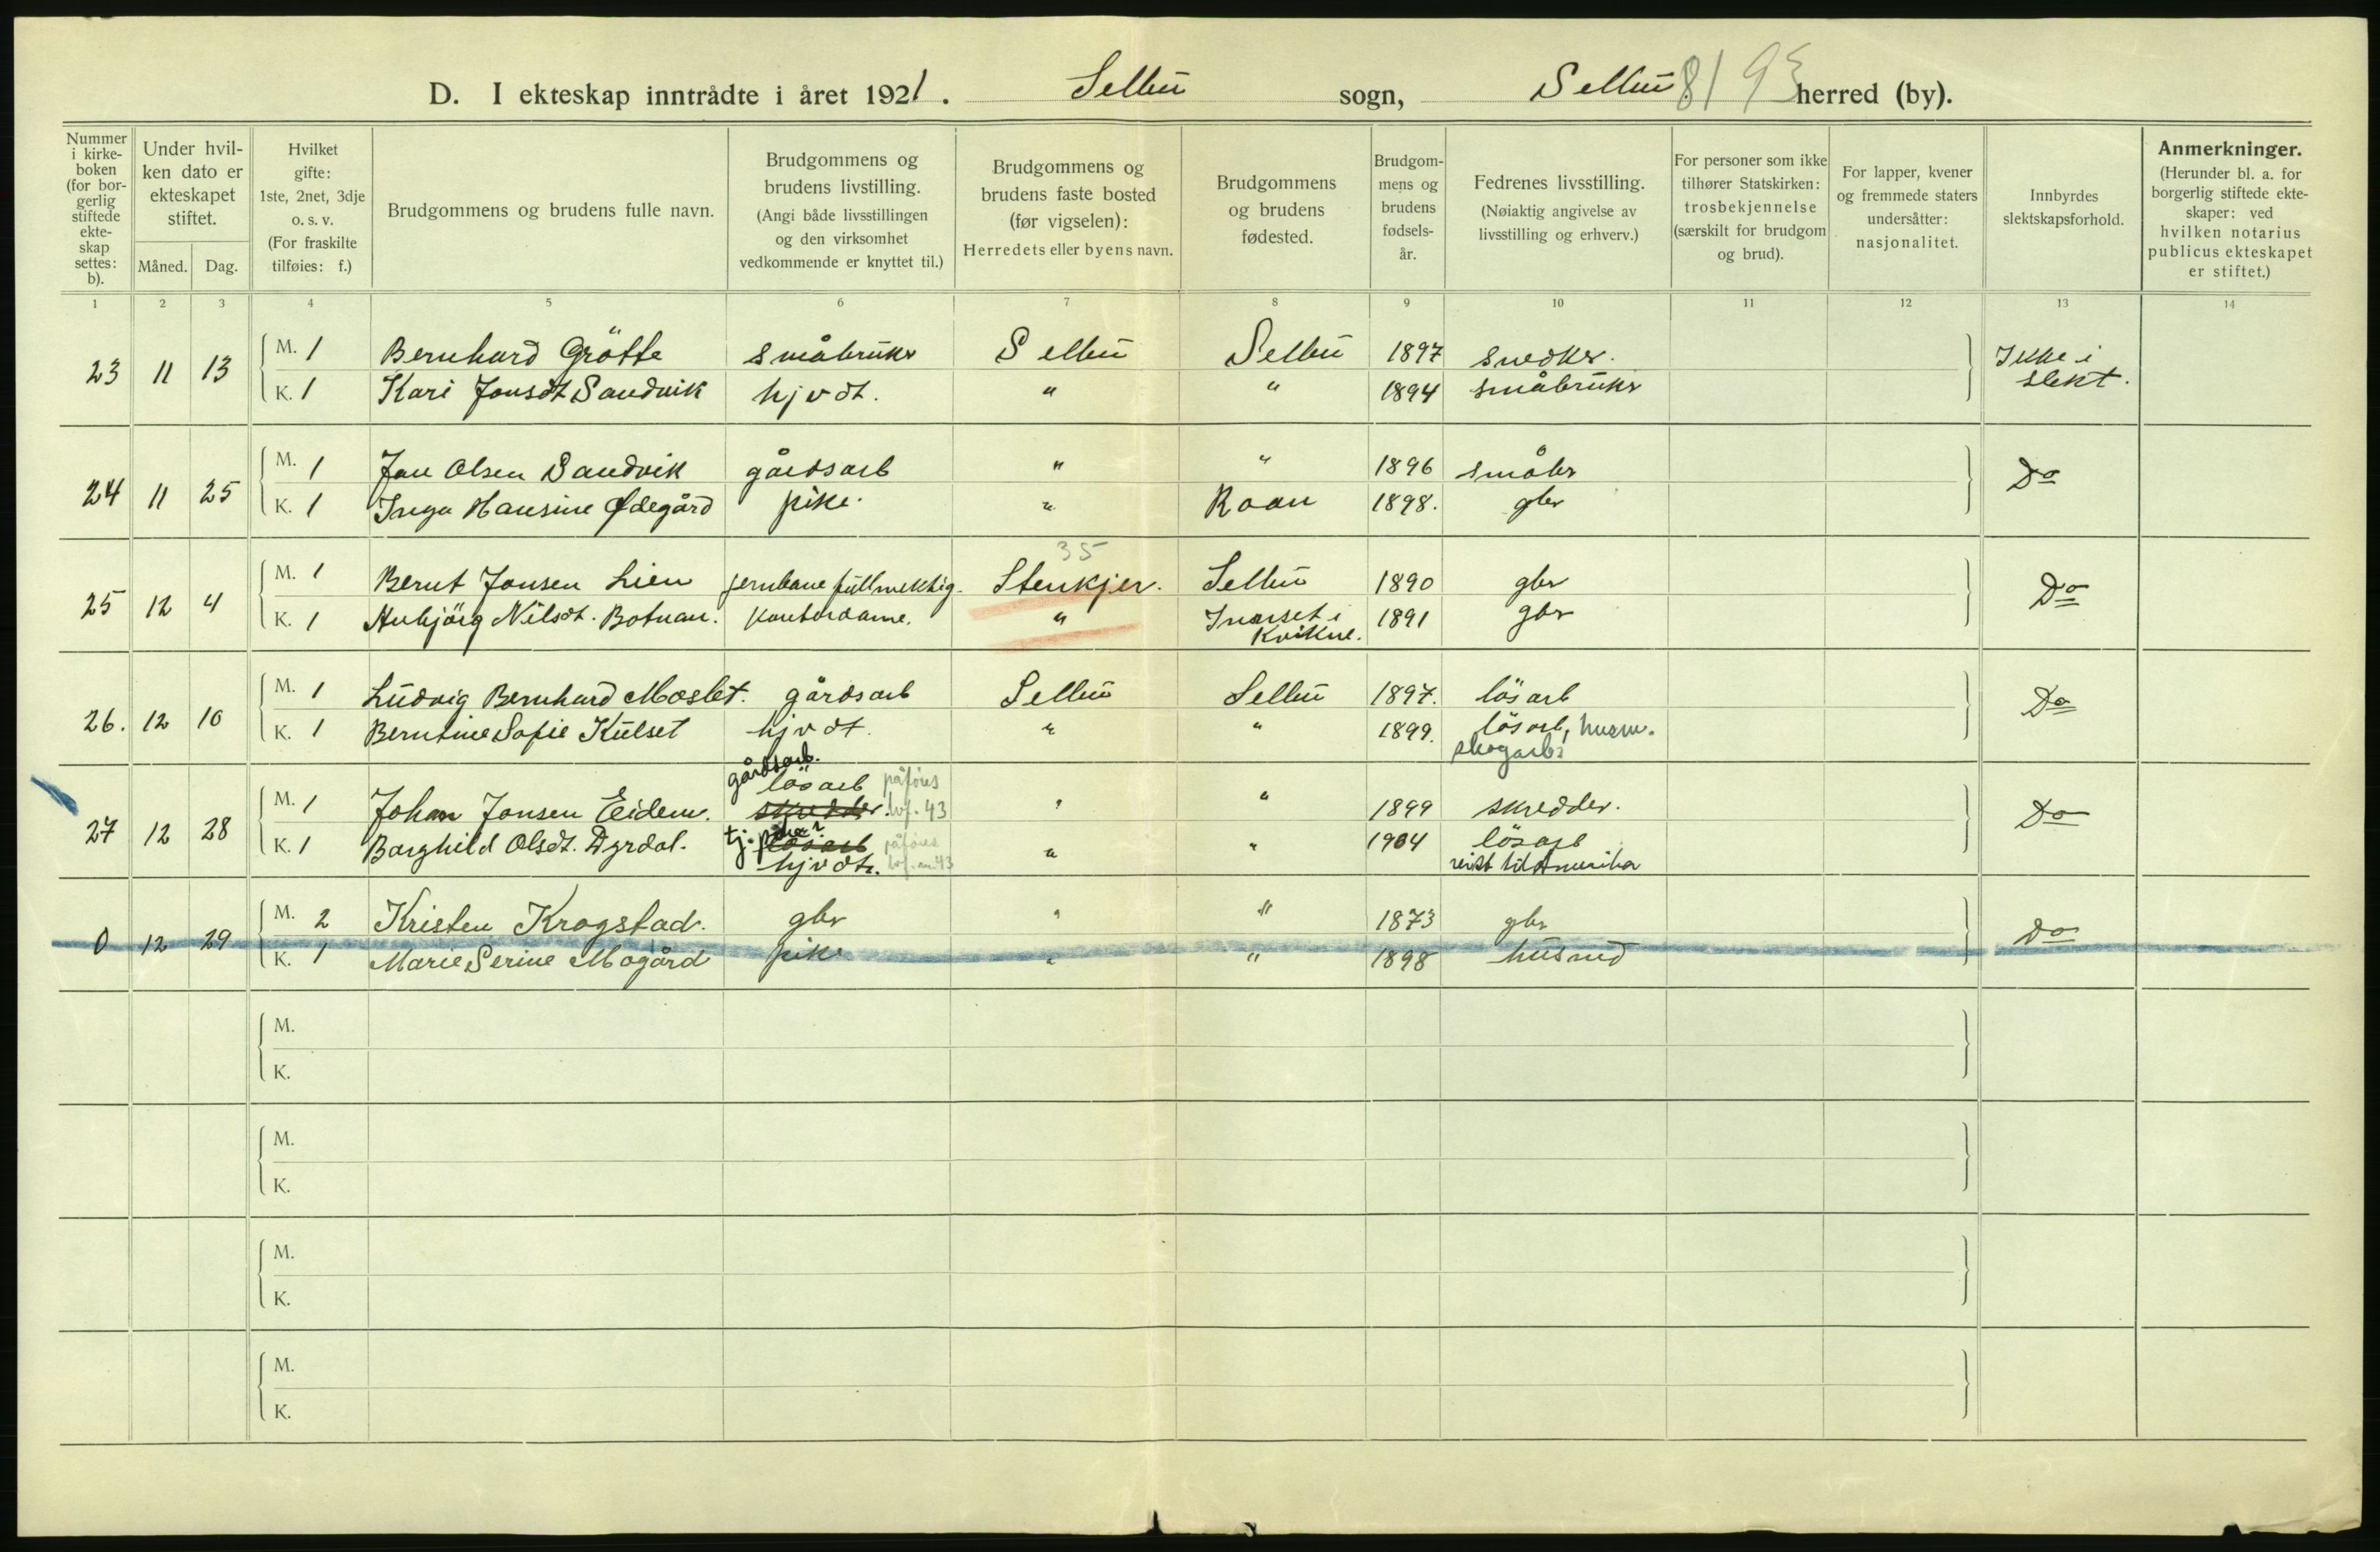 D. I ekteskap inntrådte i året 1921. Selbu sogn, Selbu 8193 herred (by).
Nummer i kirkeboken (for borgerlig stiftede ekteskap settes: b).
Under hvilken dato er ekteskapet stiftet.
Måned. Dag.
Hvilket gifte: 1ste, 2net, 3dje o. s. v. (For fraskilte tilføies: f.)
Brudgommens og brudens fulle navn.
Brudgommens og brudens livstilling. (Angi både livsstillingen og den virksomhet vedkommende er knyttet til.)
Brudgommens og brudens faste bosted (før vigselen): Herredets eller byens navn.
Brudgommens og brudens fødested.
Brudgommens og brudens fødselsår.
Fedrenes livsstilling. (Nøiaktig angivelse av livsstilling og erhverv.)
For personer som ikke tilhører Statskirken: trosbekjennelse (særskilt for brudgom og brud).
For lapper, kvener og fremmede staters undersåtter: nasjonalitet.
Innbyrdes slektskapsforhold.
Anmerkninger. (Herunder bl. a. for borgerlig stiftede ekteskaper: ved hvilken notarius publicus ekteskapet er stiftet.)
1 2 3 4 5 6 7 8 9 10 11 12 13 14
23 11 13 M. 1 Bernhard Grötte småbruks Selbu Selbu 1897 snedker. Ikke i slekt.
K. 1 Kari Jonsdt Sandvik hjv dt. " " 1894 småbruks
24 11 25 M. 1 Jon Olsen Sandvik gårdsarb " " 1896 småbr Do
K. 1 Inga Hansine Ødegård pike " Roan 1898. gbr
35
25 12 4 M. 1 Bernt Jonsen Lien jernbane fullmektig. Stenkjer. Selbu 1890 gbr Do
K. 1 Anbjörg Nilsdt. Botnan. kontordame. " Innset i Kvikne. 1891 gbr
26. 12 10 M. 1 Ludvig Bernhard Moslet. gårdsarb Selbu Selbu 1897. lösarb Do
K. 1 Berntine Sofie Kulset hjv dt. " " 1899. lösarb, husm. skogarb.
27 12 28 M. 1 Johan Jonsen Eidem. gårdsarb. lösarb skredder. påføres hvf. 43 " " 1899 skredder. Do
K. 1 Borghild Olsdt. Dyrdal. tj. pike? lösarb hjv dt. påføres " " 1904 lösarb reist til Amerika
0 12 29 M. 2 Kristen Krogstad. gbr " " 1873 gbr Do
K. 1 Marie Serine Mogård pike " " 1898 husmd
M.
K.
M.
K.
M.
K.
M.
K.